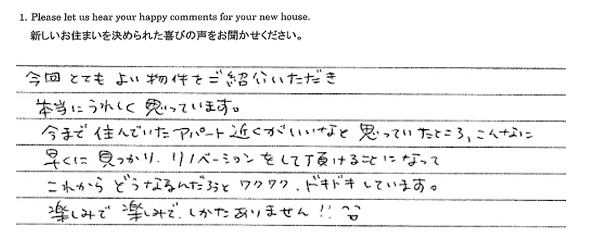 1. Please let us hear your happy comments for your new house.
新しいお住まいを決められた喜びの声をお聞かせください。
今回とてもよい物件をご紹介いただき
本当にうれしく思っています。
今まで住んでいたアパート近くがいいなと思っていたところ、こんなに
早くに見つかり、リノベーションをして頂けることになって
これからどうなるんだろうとワクワク、ドキドキしています。
楽しみで楽しみで、しかたありません!!